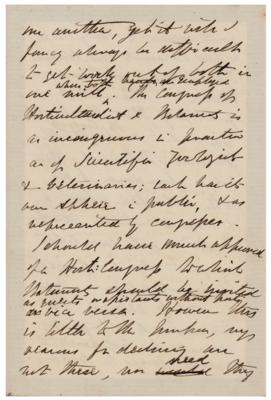 one another, yet it will I
fancy always be difficult
to get work out of both in
when both are
one unit. The Congress of
Horticulturist & Botanist is
as incongruous in practice
as of Scientific Zoologist
& Veterinaries; each has its
own sphere in public, & as
represented by congresses.
I should have much approved
of a Hort: Congress to which
Botanists should be invited
as guests or assistants without
as vice versa. However this
is little to the purpose, my
reasons for declining are
not these, nor need they